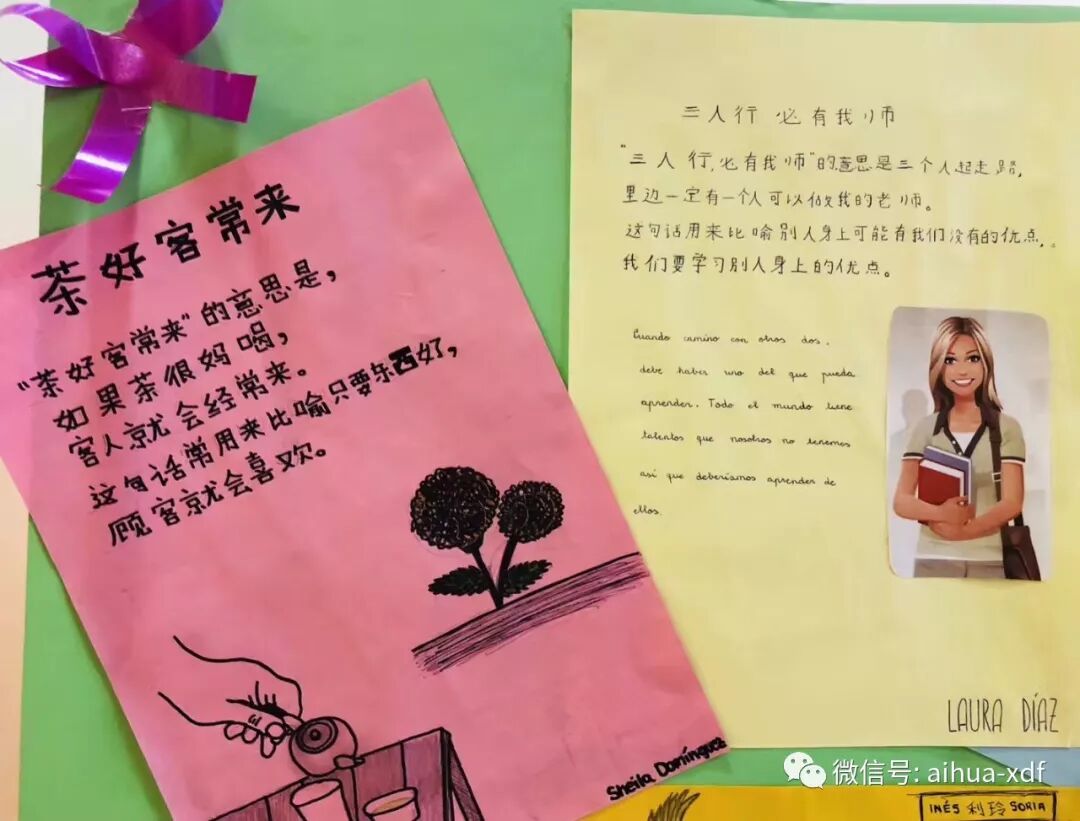 茶好客常来
"茶好客常来"的意思是,
如果茶很妈喝,
客人就会经常来。
这句话常用来比喻只要东西好,
顾客就会喜欢。
Sheila Domínguez
三人行 必有我师
"三人行,必有我师"的意思是三个人起走路,
里边一定有一个人可以做我的老师。
这句话用来比喻别人身上可能有我们没有的优点,
我们要学习别人身上的优点。
Cuando camino con otros dos,
debe haber uno del que pueda
aprender. Todo el mundo tiene
talentos que nosotros no tenemos
así que deberíamos aprender de
ellos.
LAURA DÍAZ
微信号: aihua-xdf
INÉS 利玲 SORIA